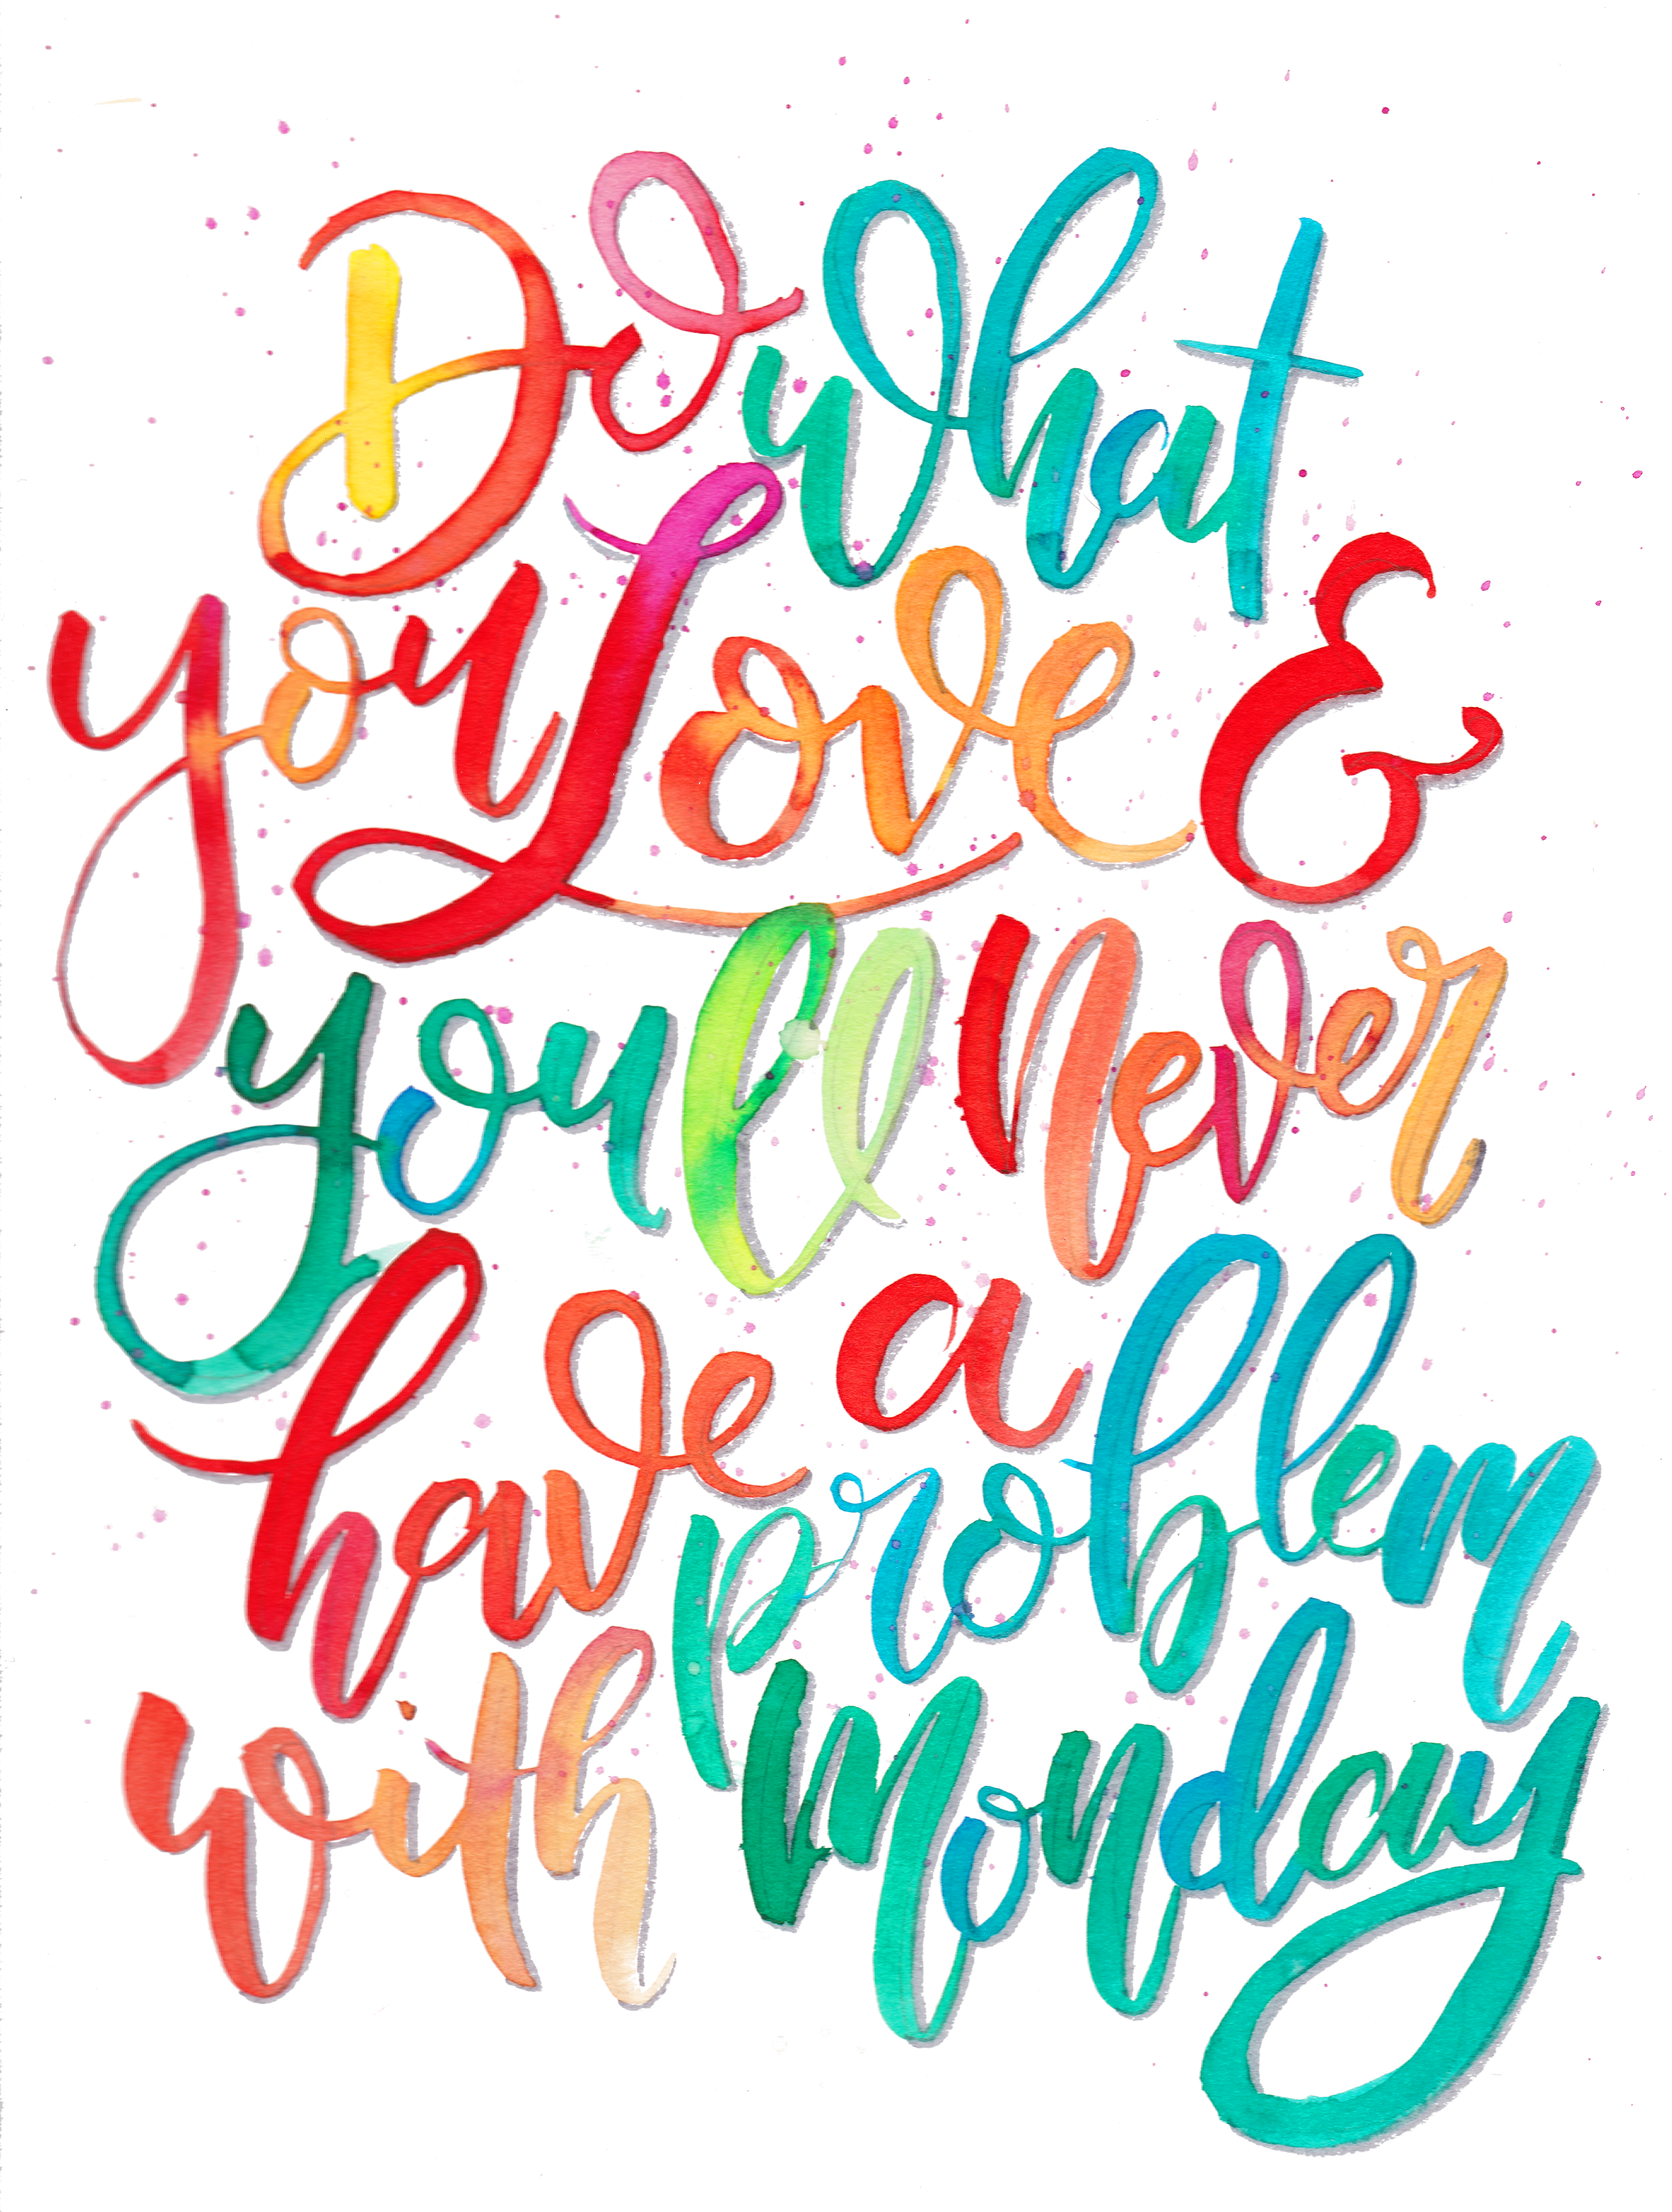 Do what
you Love &
youll never
have a problem
with monday